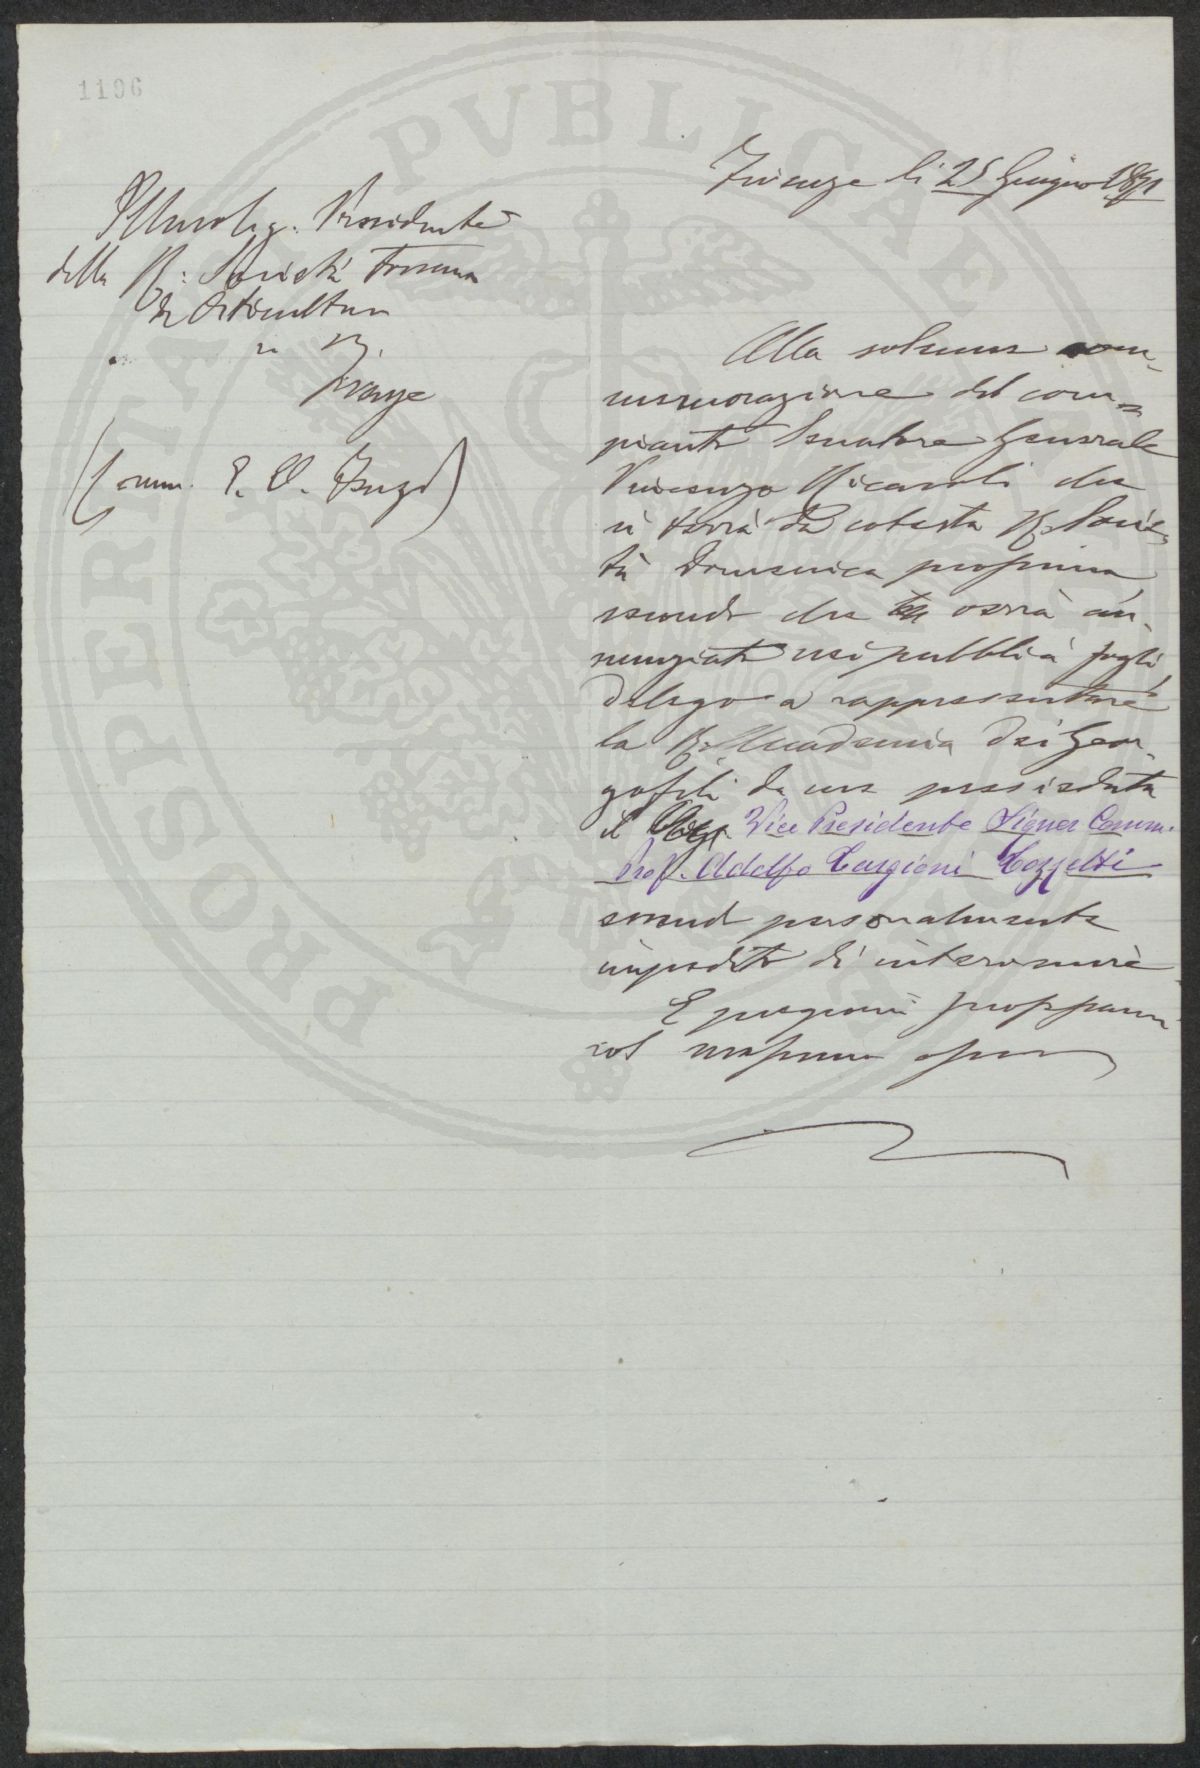 1196
Firenze li 25 Giugno 1891
Illmo Sig. Presidente
della R. Società Toscana
di Orticultura
Firenze
(Comm. E. O. Fenzi)
Alla solenne com-
memorazione del com-
pianto Senatore Generale
Vincenzo Ricasoli che
si terrà da codesta R. Socie-
tà Domenica prossima
secondo che era an-
nunziato nei pubblici fogli
delego a rappresentare
la R. Accademia dei Geor-
gofili da me presieduta
il Vice Presidente Signor Comm.
Prof. Adolfo Targioni Tozzetti
essendo personalmente
impedito di intervenire
E pregiomi
col massima
PROSPERITATI PVBLICAE AVGENDAE